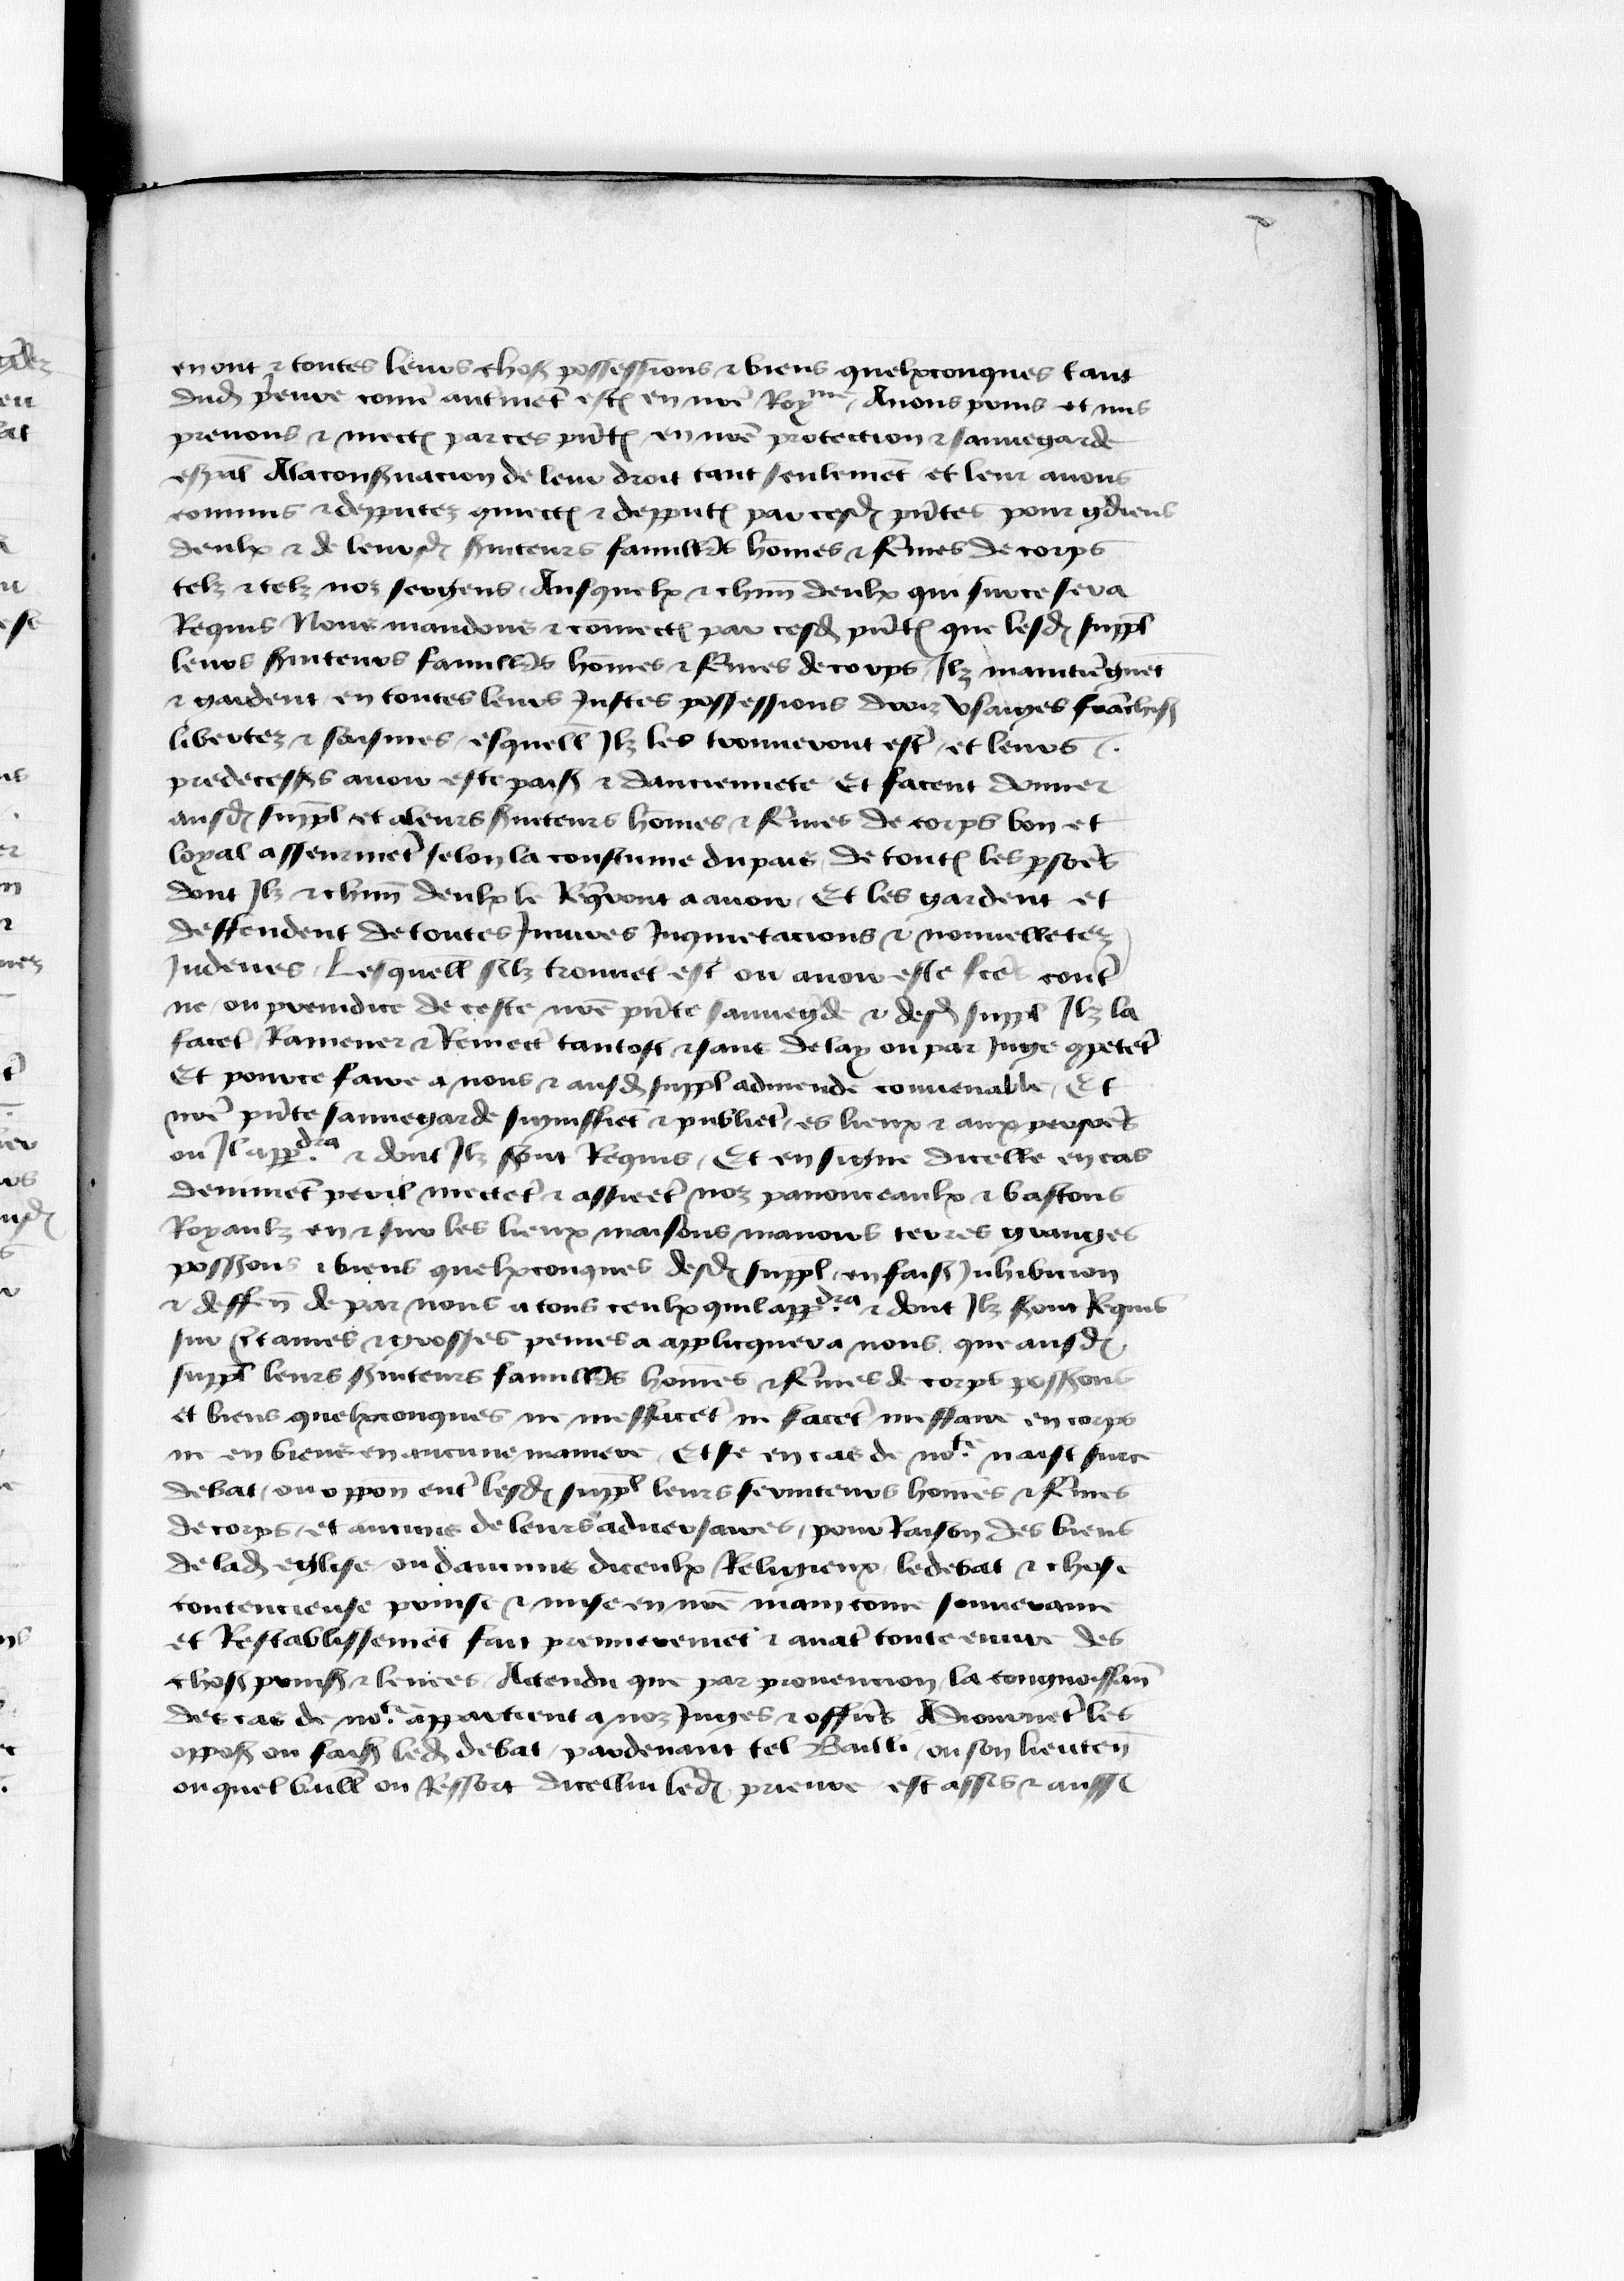 en ont & toutes leurs chos possessions & biens quelxconques tant
dud p̾eure com̄e aut̾met̄ estˀ en nr̄e Roy^me, Auons prins et mis
prenons & mectˀ par ces pñtˀ en nr̄e protection & sauuegarde
esp̄al Ala conseruacion de leur droit tant seulemēt et leur auons
commis & depputez 9mectˀ & depputˀ par cesd pñtes pour gdiens
deulx & de leursd suiteurs famill̾s hōmes & fēmes de corps
telz & telz noz sergens, Ausquelx & chun̄ deulx qui surce sera
Requis Nous mandons & cōmectˀ par cesd pñtˀ que lesd suppl
leurs suiteurs famill̾s hōmes & fēmes de corps, Ilz maintiēgnēt
& gardent en toutes leurs Justes possessions droiz vsaiges frāchis
libertez & saisines, esquell Ilz les trouueront est̾, et leurs
predecess̾s auoir este paisˀ & dancienneté Et facent donner
ausd suppl et aleurs suiteurs hōmes & fēmes de corps bon et
loyal asseurmet̄ selon la coustume du pais, de toutˀ les psōes
dont Ilz & chun̄ deulx le Req̄rront a auoir, Et les gardent et
deffendent de toutes Iniures Inquietacions & nouuelletez
Indeues, Lesquell silz trouuēt est̾ ou auoir este fc̄es cont̾
ne, ou preiudice de ceste nr̄e pñte sauueg̾de & desd suppl Ilz la
facēt Ramener & Remect̾ tantost & sans delay ou par Juge 9petēt
Et pource faire a nous & ausd suppl admende conuenable, Et
nr̄e pñte sauuegarde signiffiēt & publiēt, es lieux & aux psoēs
ou Il app.^dra & dont Ilz seront Requis, Et en signe dicelle en cas
deminēt peril mectēt & assieēt noz panonceaulx & bastons
Royaulz en & sur les lieux maisons manoirs terres granges
poss̄ons & biens quelxconques desd suppl, en faisˀ Inhibicion
& deffen̄ de par nous a tous ceulx quil app.^dra & dont Ilz seront Requis
sur c̾taines & grosses peines a applicquer a nous, que ausd
suppl leurs suiteurs famill̾s hōmes & fēmes de corps poss̄ons
et biens quelxconques ne meffacēt ne facēt meffaire en corps
ne en biens en aucune maniere, Et se en cas de no.^te naist surce
debat, ou oppon̄ ent̾ lesd suppl leurs seruiteurs hōmes & fēmes
de corps, et aucuns de leurs aduersaires, pour Raison des biens
de lad eglise, ou daucuns diceulx Religieux, le debat & chose
contencieuse prinse & mise en nr̄e main cōme souueraine
et Restablissemēt fait premieremēt & auāt toute euure des
chosˀ prinsˀ & leuees Actendu que par preuencion la congnoissan̄
des cas de no.^te appartient a noz Juges & offic̾s Adiournēt les
opposˀ ou faisˀ led debat, pardeuant tel Bailli, ou son lieuten̄
ou quel baill̄ ou Ressort dicellui led prieure est assis & aussi